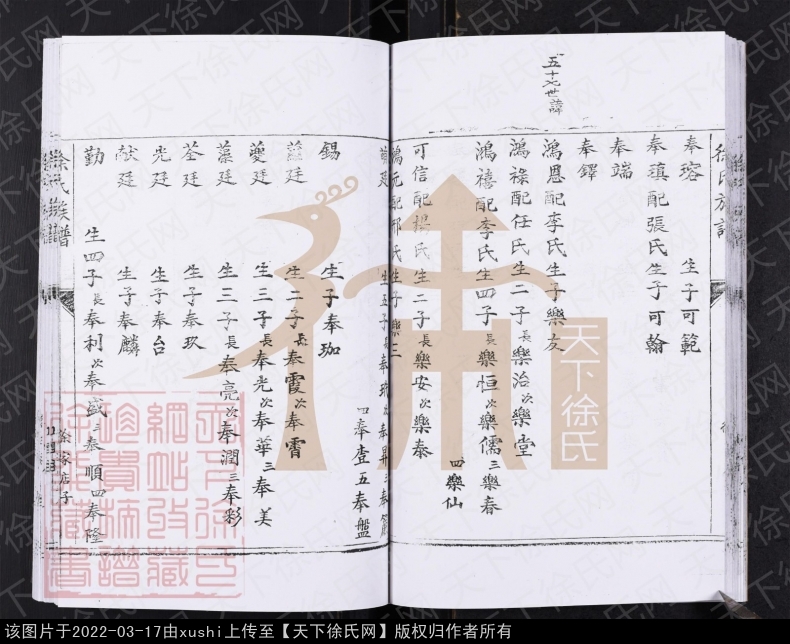 五十七世諱
奉瑢 生子可範
奉瑱配張氏生子可翰
奉端
奉鐸
鴻恩配李氏生子樂友
鴻祿配任氏生二子長樂治次樂堂
鴻禧配李氏生四子長樂恒次樂儒三樂春
四樂仙
可信配楊氏生二子長樂安次樂泰
鴻元配邢氏生子樂三
四奉查五奉盤
錫 生子奉珈
蘊廷 生二子長奉霞次奉霄
夔廷 生三子長奉光次奉華三奉美
藻廷 生三子長奉亮次奉潤三奉彩
荃廷 生子奉玖
光廷 生子奉台
猷廷 生子奉麟
勤 生四子長奉利次奉盛三奉順四奉隆
徐氏族譜
天下徐氏
该图片于2022-03-17由xushi上传至【天下徐氏网】版权归作者所有